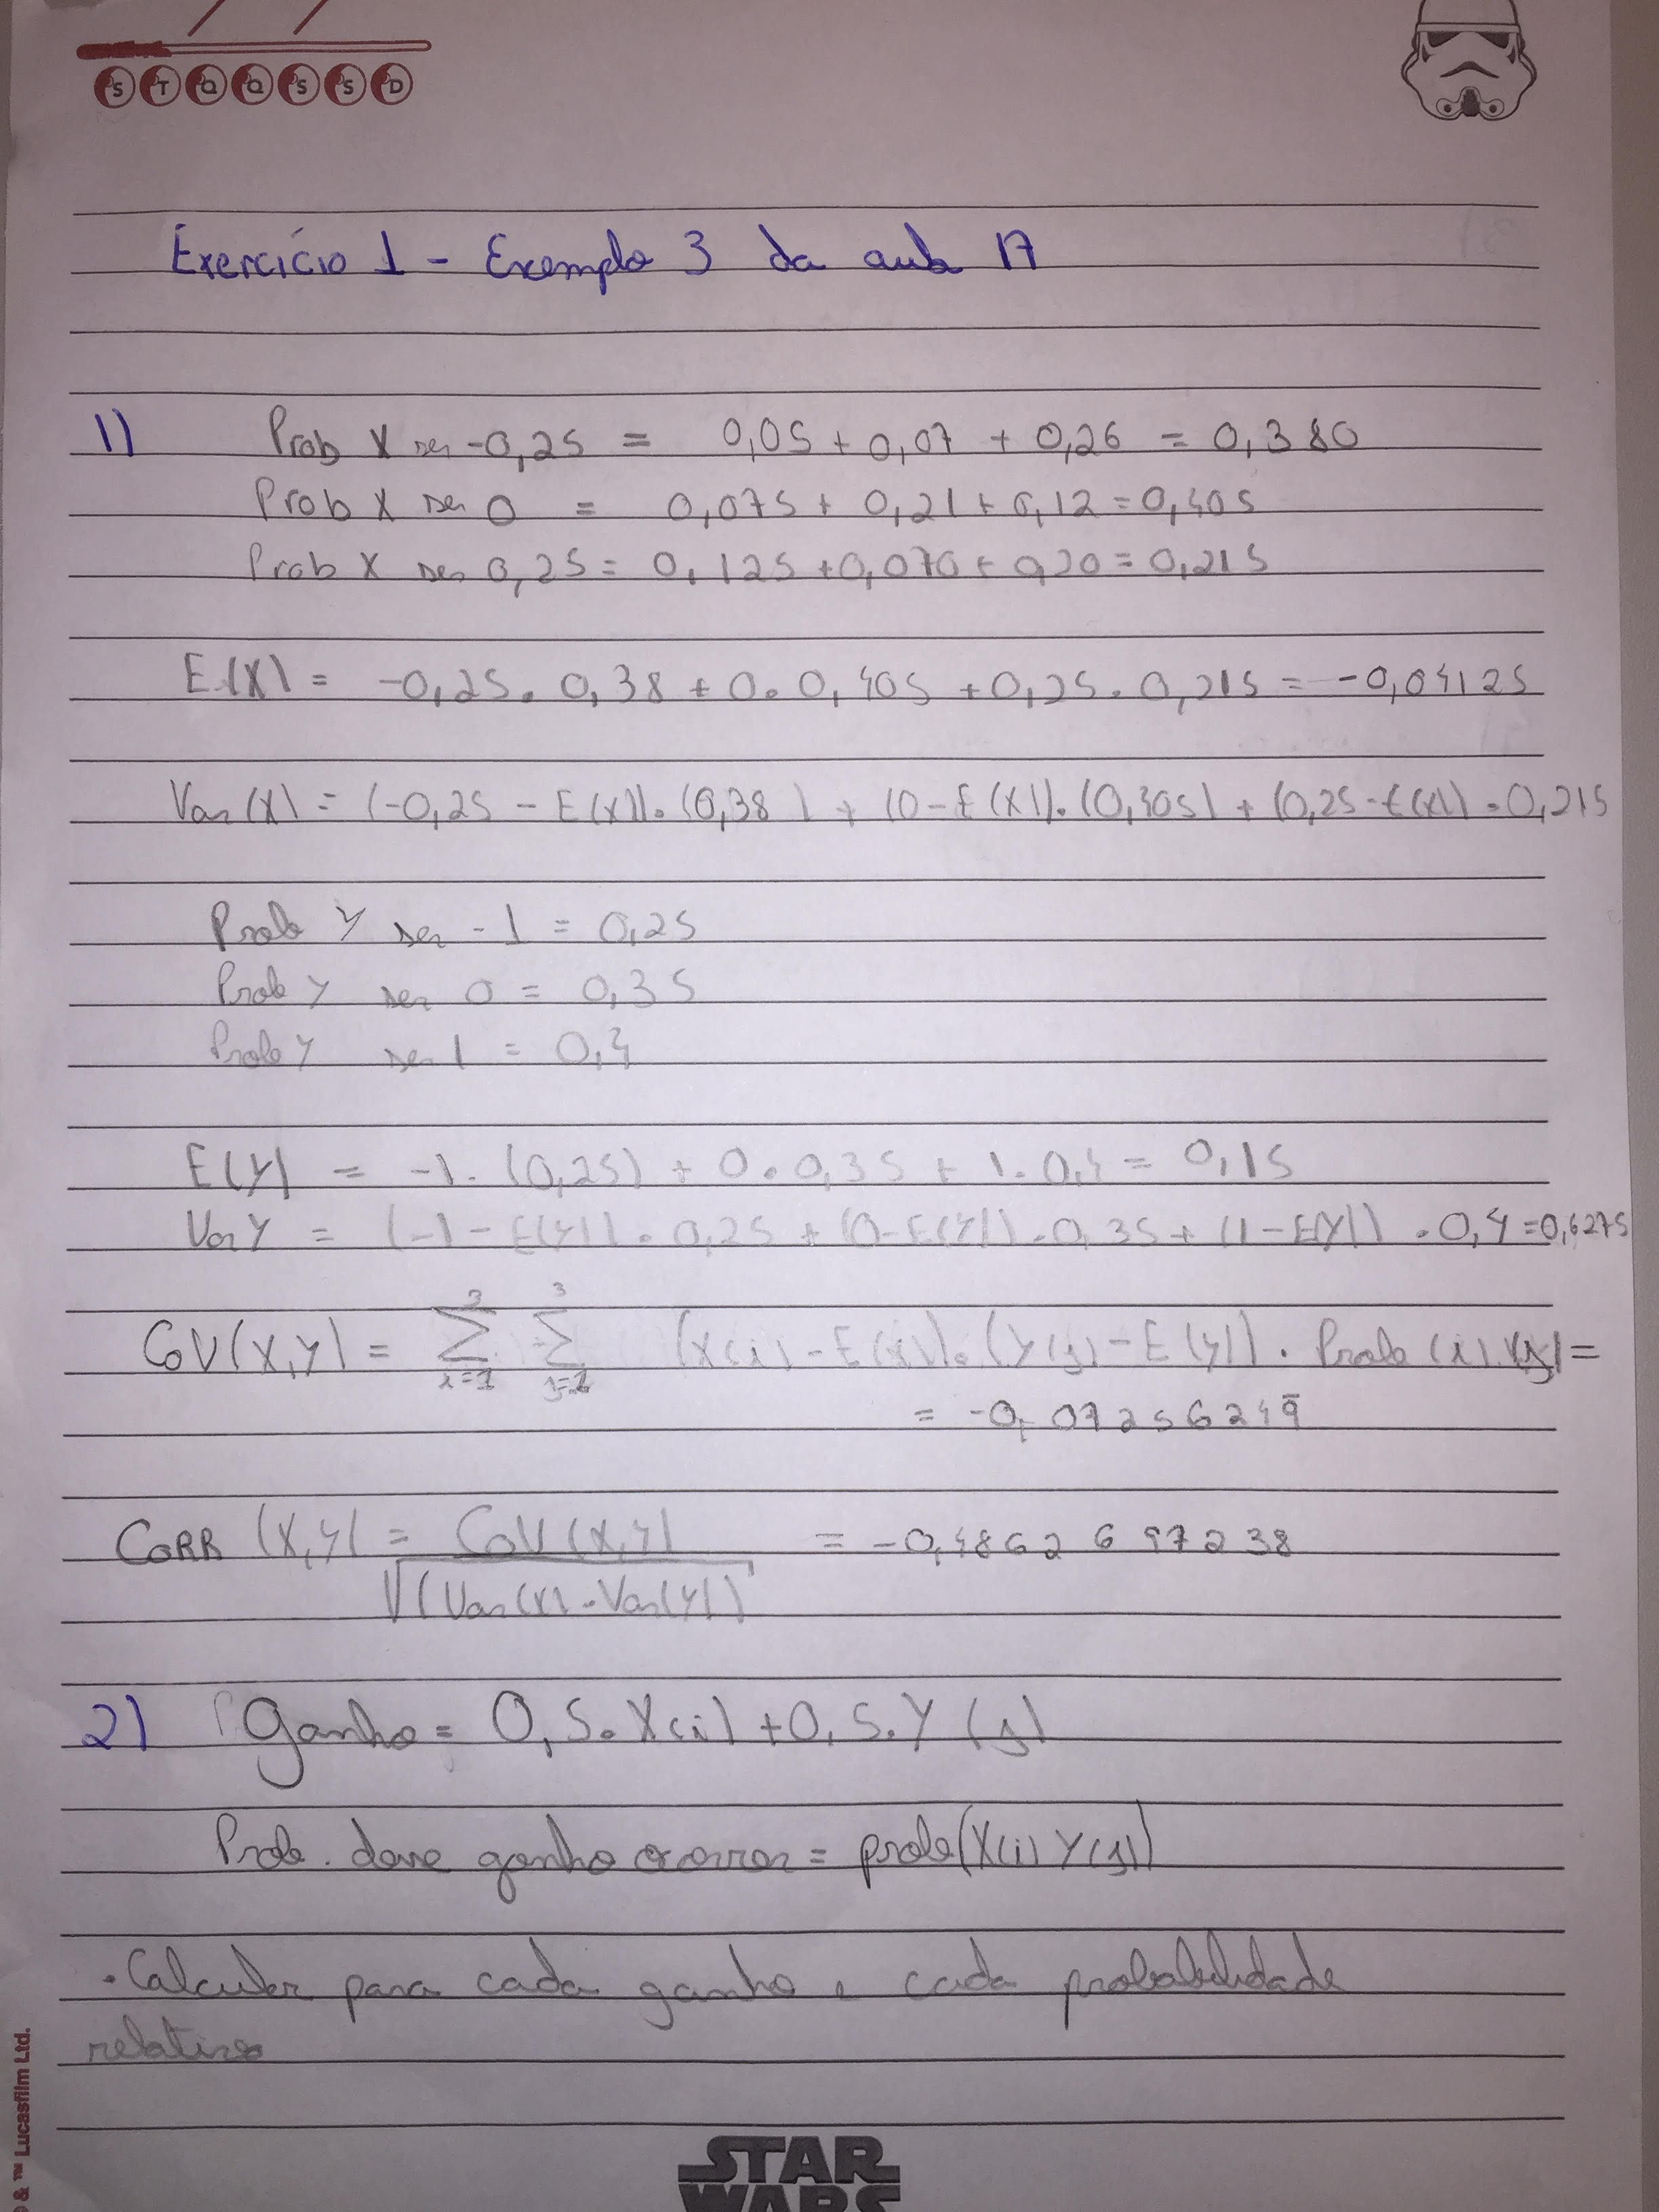 S T Q Q S S D
Exercício 1 - Exemplo 3 da aula 17
1) Prob X ser -0,25 = 0,05 + 0,07 + 0,26 = 0,380
Prob X ser 0 = 0,075 + 0,21 + 0,12 = 0,405
Prob X ser 0,25 = 0,125 + 0,070 + 0,20 = 0,215
E(X) = -0,25 . 0,38 + 0 . 0,405 + 0,25 . 0,215 = -0,04125
Var(X) = (-0,25 - E(X)).(0,38) + (0 - E(X)).(0,405) + (0,25 - E(X)) . 0,215
Prob Y ser -1 = 0,25
Prob Y ser 0 = 0,35
Prob Y ser 1 = 0,4
E(Y) = -1 . (0,25) + 0 . 0,35 + 1 . 0,4 = 0,15
Var Y = (-1 - E(Y)) . 0,25 + (0 - E(Y)) . 0,35 + (1 - E(Y)) . 0,4 = 0,6275
COV(X,Y) = 3∑i=1 3∑j=1 (X(i) - E(x)).(Y(j) - E(y)) . Prob (i).Y(j) =
= -0,07256249
CORR (X,Y) = COV(X,Y) / √(Var(X).Var(Y)) = -0,48626497238
2) Ganho = 0,5.X(i) + 0,5.Y(j)
Prob. desse ganho ocorrer = prob(X(i) Y(j))
. Calcular para cada ganho e cada probabilidade
relativa
STAR
WARS
& ™ Lucasfilm Ltd.